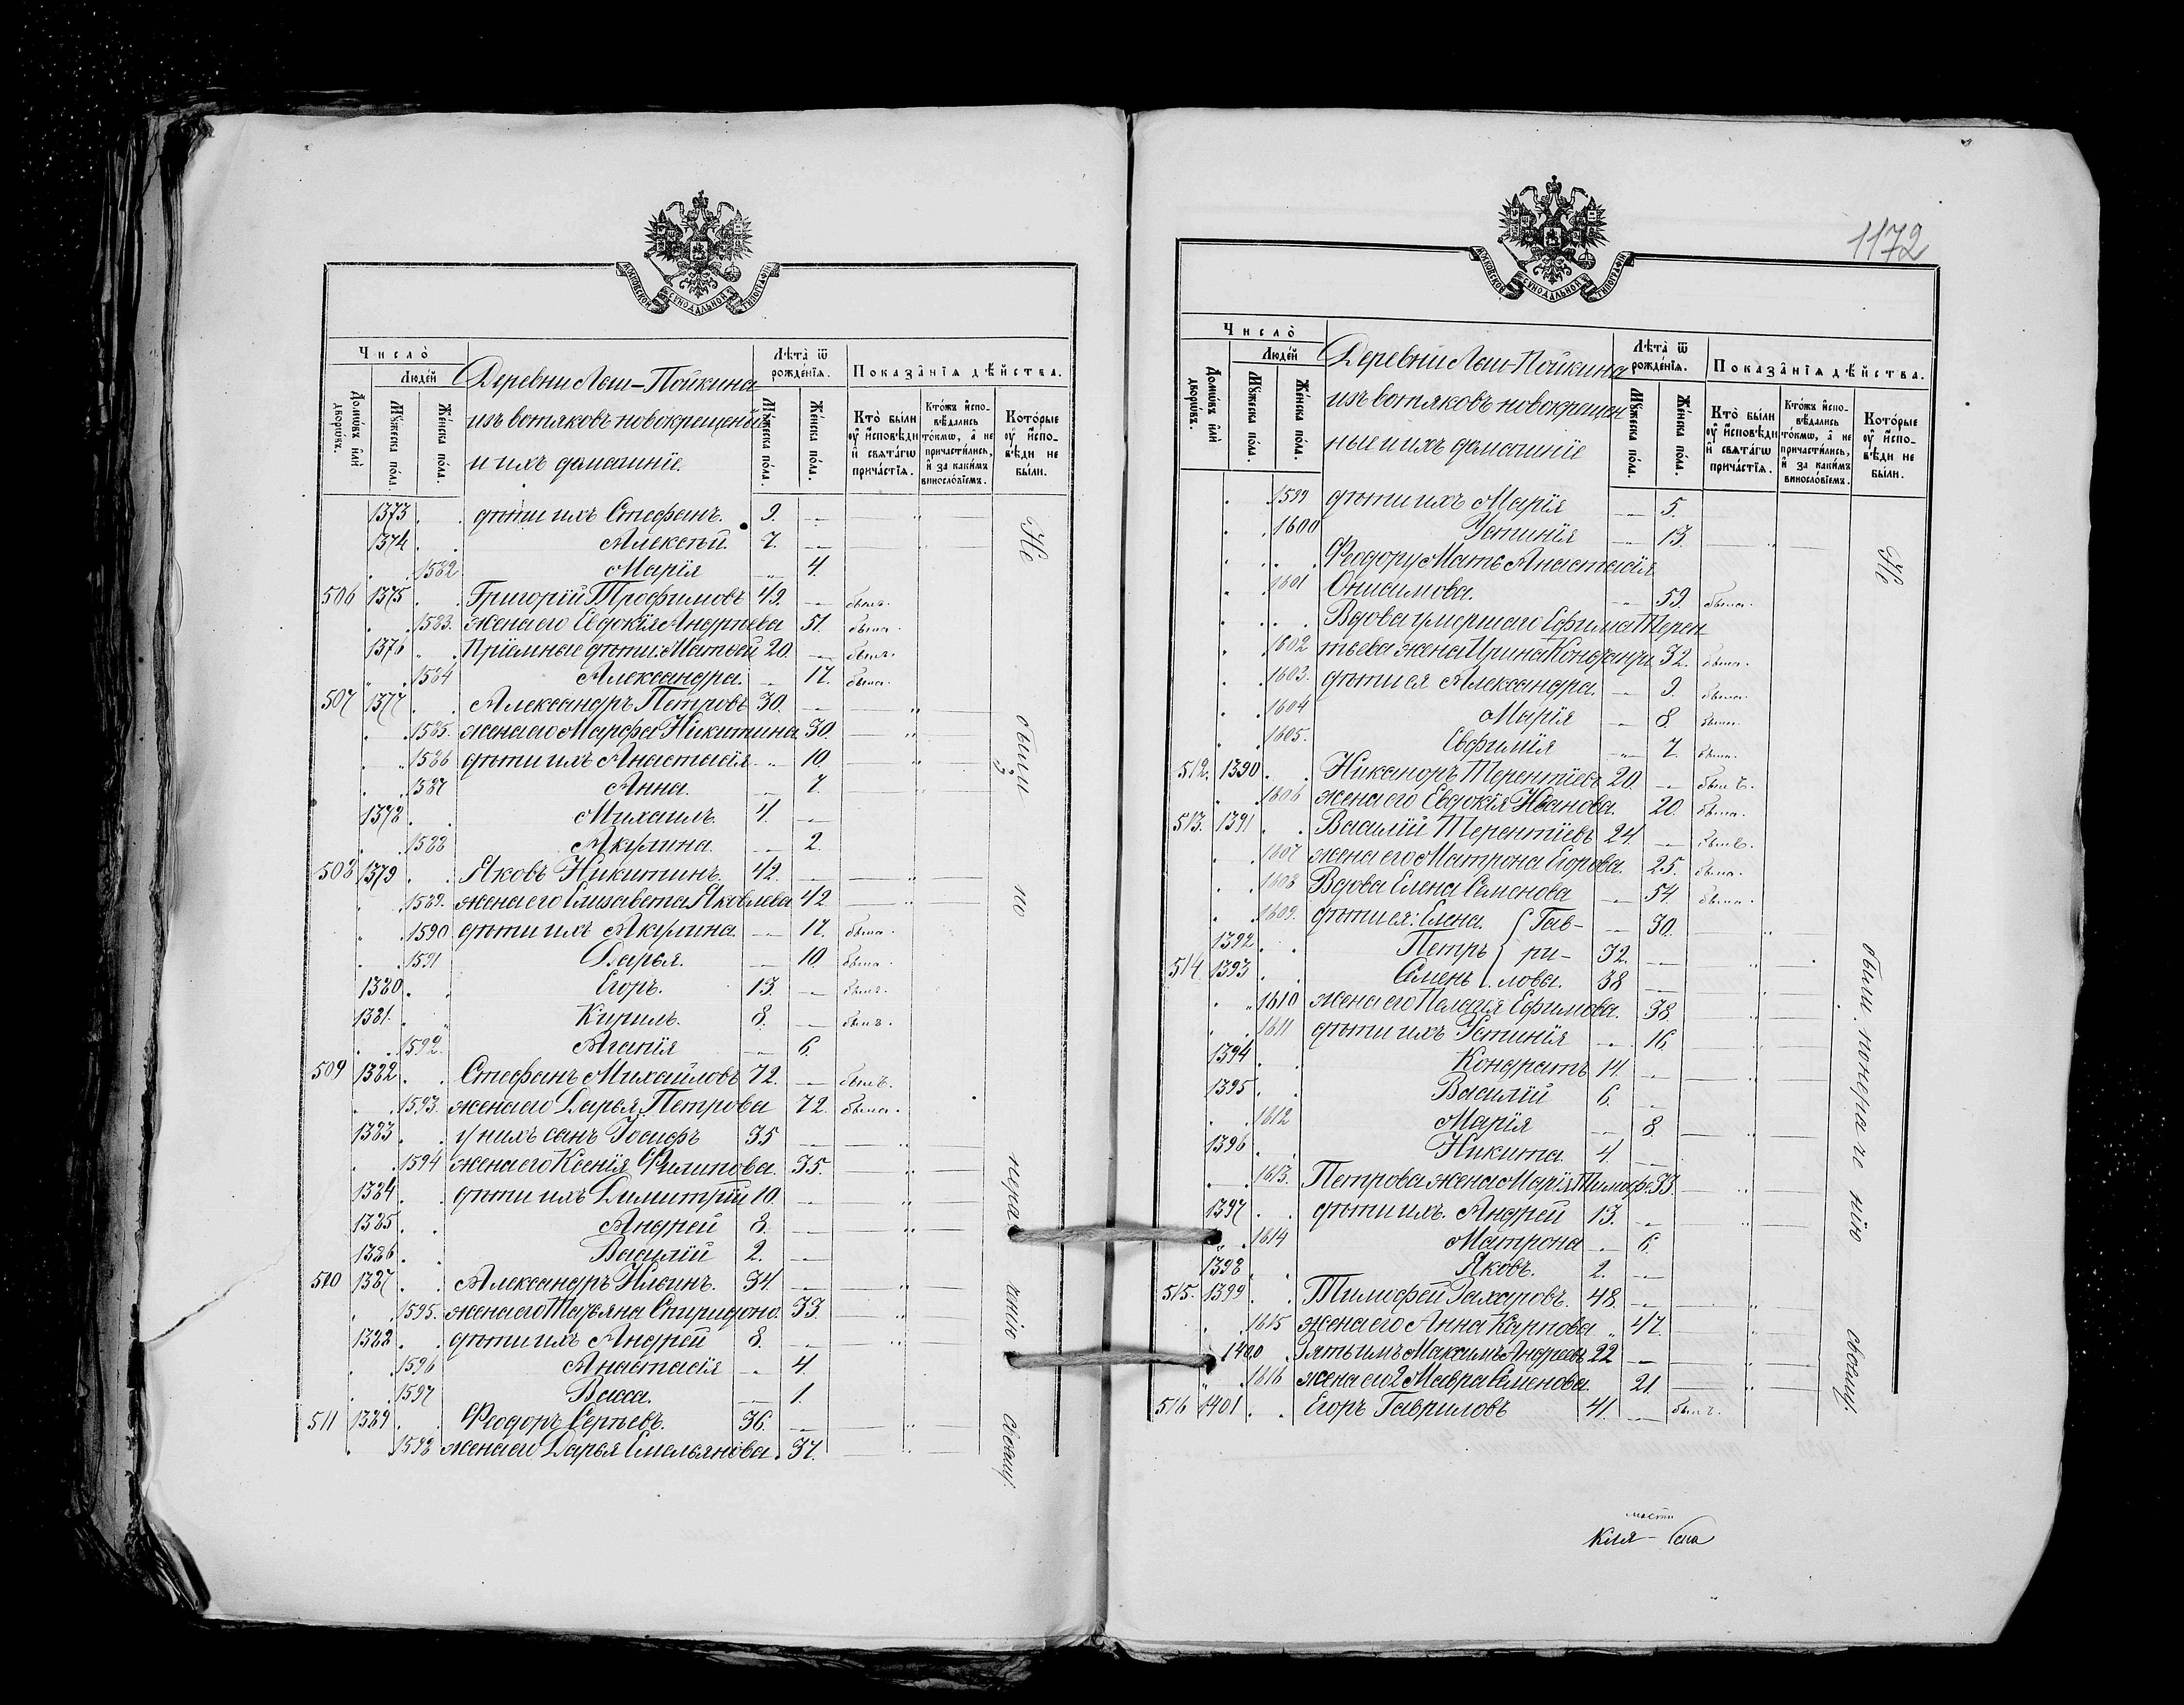 МОСКОВСКОЙ СѴНОДАЛЬНОЙ ТИПОГРАФІИ
Число̀
Людей
Домѡвъ и҆лѝ дворѡвъ.
Мꙋжеска пола.
Женска пола.
Деревни Лош-Пойкина
изъ вотяковъ новокрещеный
и ихъ домашніе.
Лѣта ѿ рожденїѧ.
Мꙋжеска пола.
Женска пола.
Показанїѧ дѣйства.
Кто были оу҆ исповѣди и свѧтагѡ причастїѧ.
Ктожъ исповѣдались токмѡ, а не причастились, и за какимъ винословїемъ.
Которые оу҆ исповѣди не были.
1373 дѣти ихъ Стефанъ. 9.
1374 Алексѣй. 7.
1582 Марія 4.
506 1375 Григорій Трофимовъ 49. былъ.
1583. жена его Евдокія Андреева 51. была.
1376 Пріемные дѣти: Матѳей 20. былъ.
1584 Александра. 17. была.
507 1377 Александръ Петровъ 30.
1585. жена его Марфа Никитина 30.
1586 дѣти ихъ Анастасія 10.
1587 Анна. 7.
1378 Михаилъ. 4.
1588 Акилина. 2.
508 1379 Яковъ Никитинъ. 42.
1589. жена его Елисавета Яковлева 42
1590 дѣти ихъ Акилина. 17. была.
1591 Дарья. 10. была.
1380 Егоръ. 13. былъ.
1381. Кирилъ. 8. былъ.
1592. Агапія 6.
509 1382 Стефанъ Михайловъ 72. былъ.
1593. жена его Дарья Петрова 72. была.
1383 у нихъ сынъ Іосифъ 35
1594 жена его Ксенія Филипова. 35.
1384 дѣти ихъ Димитрій 10.
1385 Андрей 8.
1386 Василій 2.
510 1387 Александръ Ильинъ. 34.
1595. жена его Татьяна Спиридоно. 33.
1388 дѣти ихъ Андрей 8.
1596 Анастасія 4.
1597 Васса. 1.
511 1389 Ѳеодоръ Сергѣевъ. 36.
1598 жена его Дарья Емельянова. 37.
Не были по нера дѣнію своему.
1172
МОСКОВСКОЙ СѴНОДАЛЬНОЙ ТИПОГРАФІИ
Число̀
Людей
Домѡвъ и҆лѝ дворѡвъ.
Мꙋжеска пола.
Женска пола.
Деревни Лош-Пойкина
изъ вотяковъ новокрещен
ные и ихъ домашніе
Лѣта ѿ рожденїѧ.
Мꙋжеска пола.
Женска пола.
Показанїѧ дѣйства.
Кто были оу҆ исповѣди и свѧтагѡ причастїѧ.
Ктожъ исповѣдались токмѡ, а не причастились, и за какимъ винословїемъ.
Которые оу҆ исповѣди не были.
1599 дѣти ихъ Марія 5.
1600 Устинія 13.
Ѳеодору Мать Анастасія
1601 Онисимова. 59. была.
Вдова умершаго Ефима Терен
1602 тьева жена Ирина Кондратьи 32. была.
1603. дѣти ея Александра. 9. была.
1604 Марія 8. была.
1605. Евфимія 7. была.
512. 1390 Никаноръ Терентіевъ 20. былъ.
1606 жена его Евдокія Иванова. 20. была.
513. 1391 Василій Терентіевъ 24. былъ.
1607 жена его Матрона Егорова. 25. была.
1608 Вдова Елена Семенова 54. была.
1609. дѣти ея: Елена. Гав- 30.
1392 Петръ ри- 32.
514 1393 Семенъ лова. 38
1610 жена его Пелагія Ефимова. 38.
1611 дѣти ихъ Устинія 16.
1394 Кондратъ 14.
1395 Василій 6.
1612 Марія 8.
1396 Никита. 4.
1613. Петрова жена Марія Тимоф. 33.
1397 дѣти ихъ. Андрей 13.
1614 Матрона 6.
1398 Яковъ. 2.
515. 1399 Тимофей Захаровъ. 48.
1615 жена его Анна Карпова 47.
1400 Зять имъ Максимъ Андреевъ 22
1616 жена его 2 Мавра Семенова. 21.
516 1401 Егоръ Гавриловъ 41. былъ.
Не были по нера дѣ нію своему.